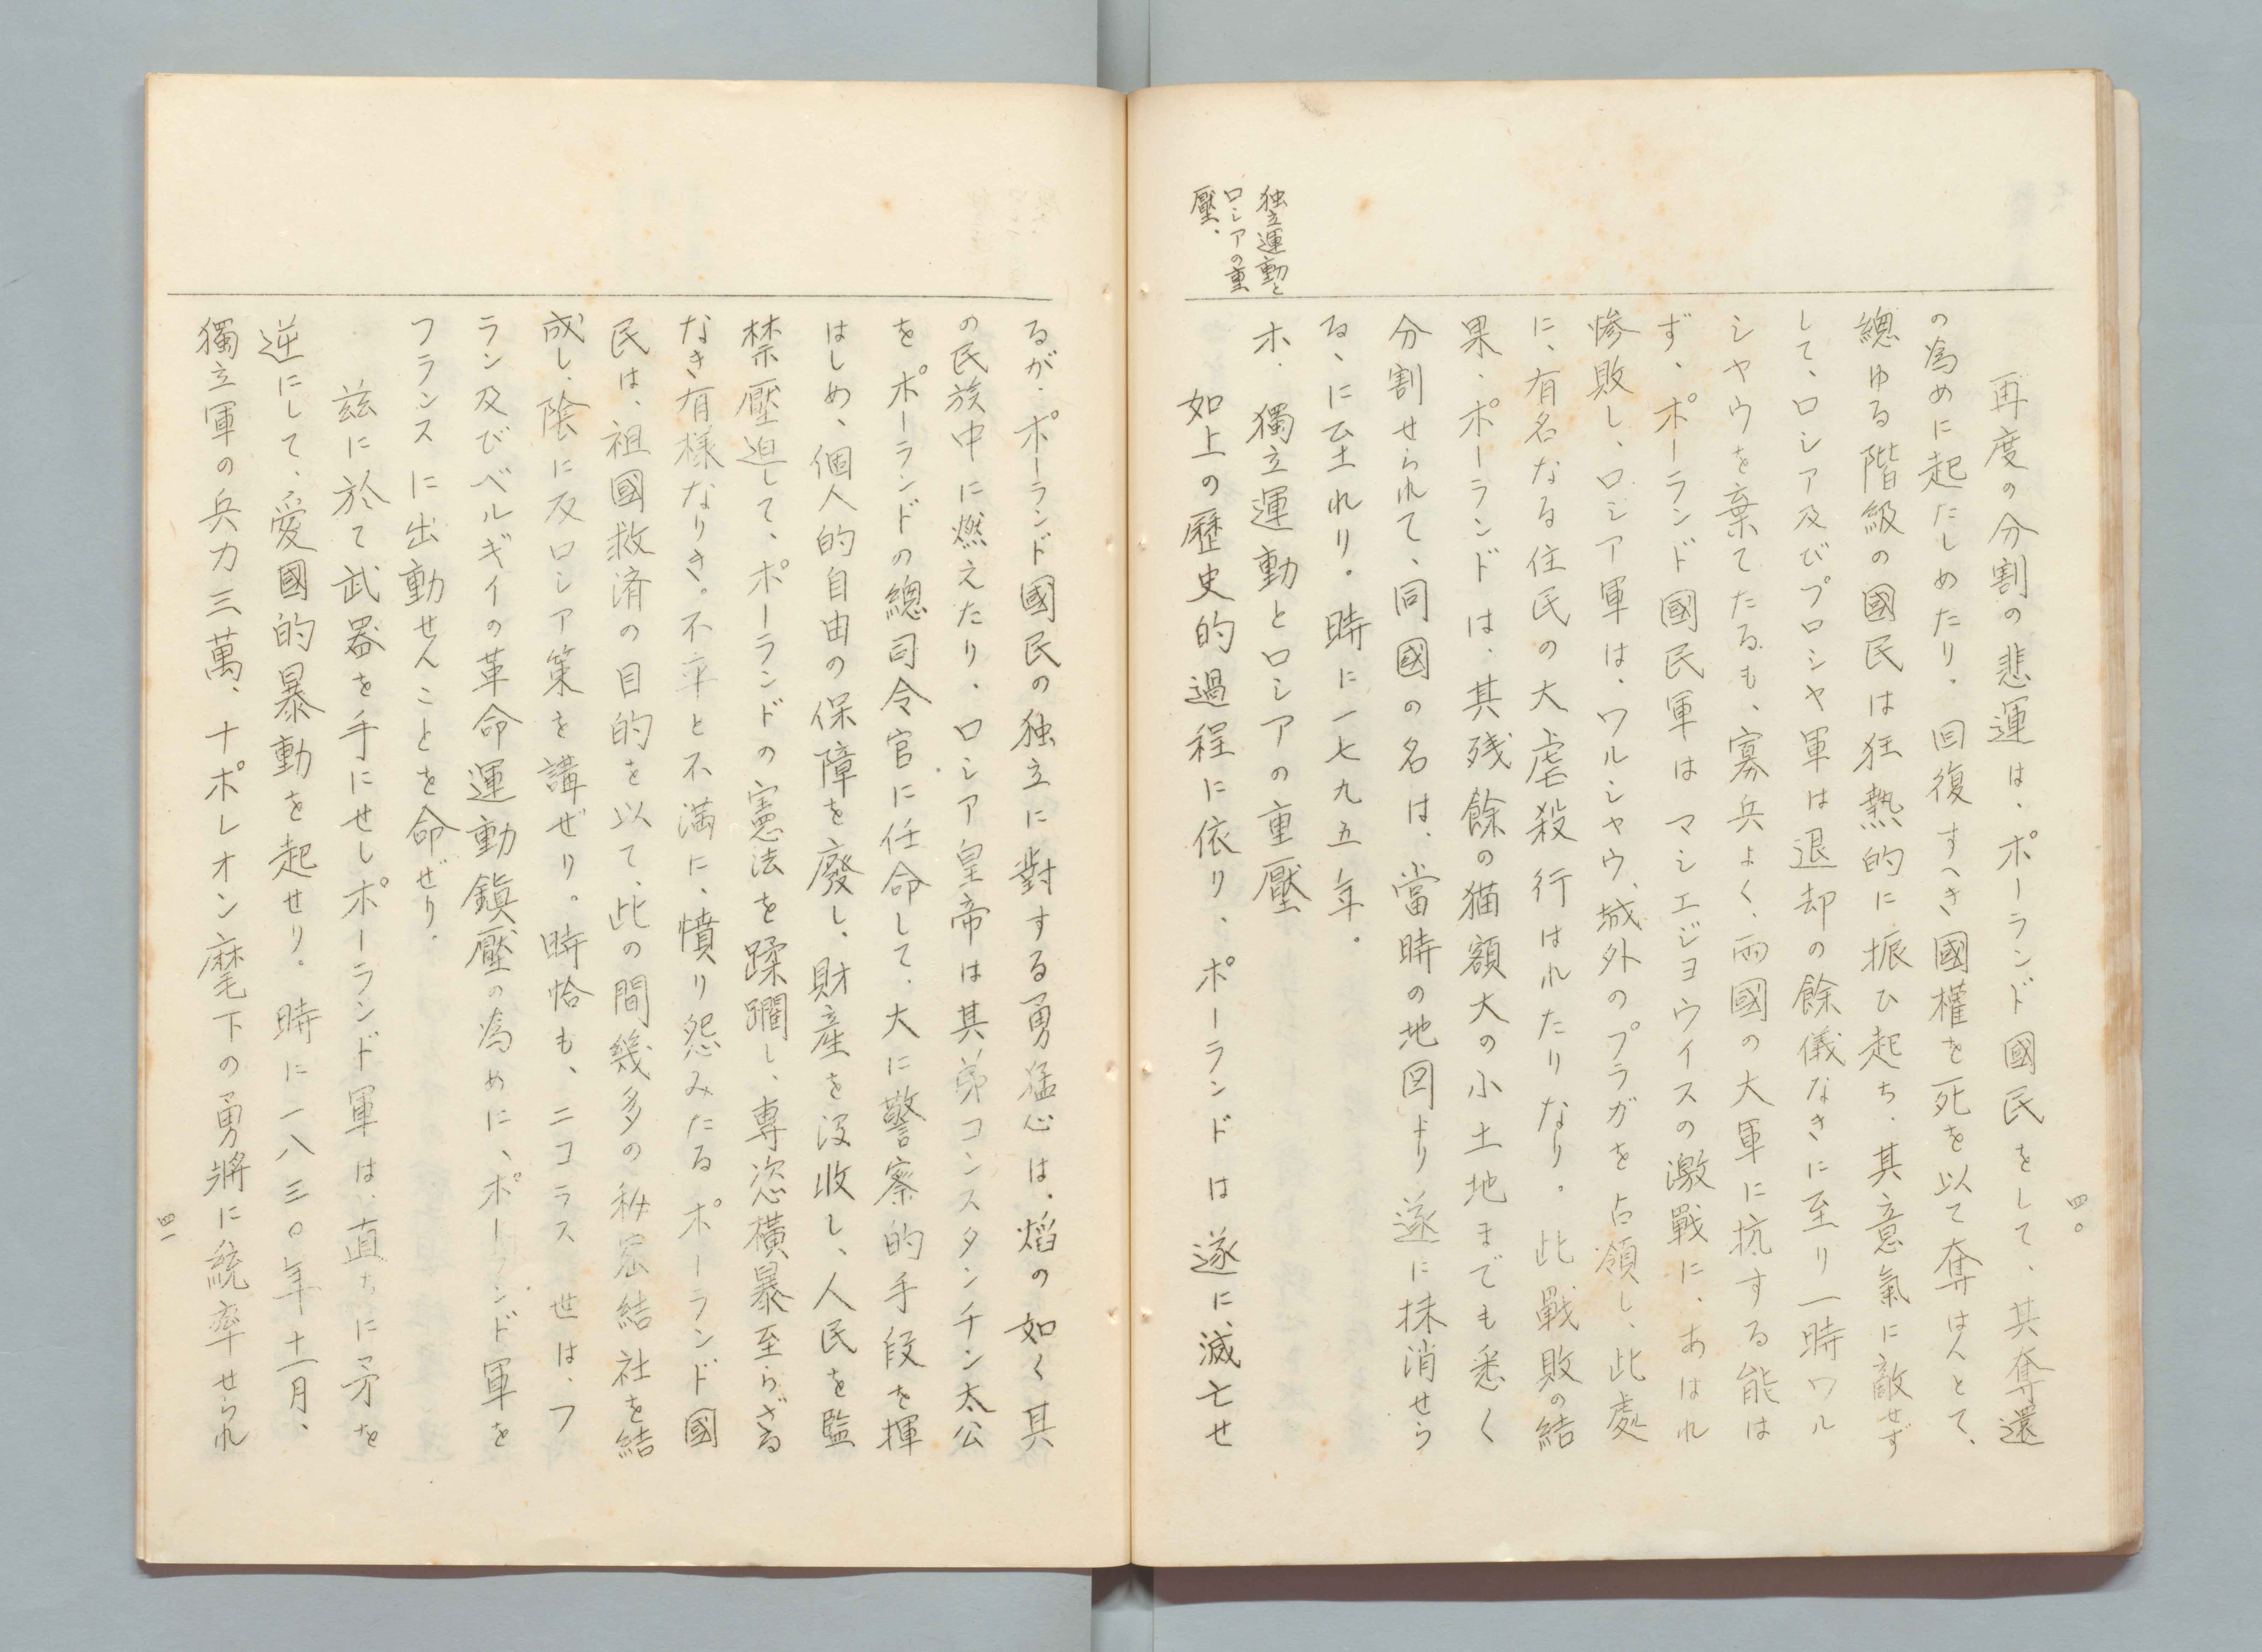 四〇
再度の分割の悲運は、ポーランド國民をして、其奪還
の為めに起たしめたり。回復すへき國權を死を以て奪はんとて、
總ゆる階級の國民は狂熱的に振ひ起ち、其意氣に敵せず
して、ロシア及びプロシヤ軍は退却の餘儀なきに至り一時ワル
シヤウを棄てたるも、寡兵よく、両國の大軍に抗する能は
ず、ポーランド國民軍はマシエジヨウイスの激戰に、あはれ
惨敗し、ロシア軍は、ワルシヤウ、城外のプラガを占領し、此處
に、有名なる住民の大虐殺行はれたりなり。此戰敗の結
果、ポーランドは、其残餘の猫額大の小土地までも悉く
分割せられて、同國の名は、當時の地図より遂に抹消せら
る、に至れり。時に一七九五年。
独立運動と
ロシアの重
壓、
ホ、獨立運動とロシアの重壓
如上の歷史的過程に依り、ポーランドは遂に、滅亡せ
るが、ポーランド國民の独立に對する勇猛心は、焰の如く其
の民族中に燃えたり、ロシア皇帝は其弟コンスタンチン太公
をポーランドの總司令官に任命して、大に警察的手段を揮
はしめ、個人的自由の保障を廢し、財産を沒收し、人民を監
禁壓迫して、ポーランドの憲法を蹂躙し、専恣橫暴至らざる
なき有様なりき。不平と不満に、憤り怨みたるポーランド國
民は、祖國救済の目的を以て、此の間幾多の秘密結社を結
成し、陰に反ロシア策を講ぜり。時恰も、ニコラス世は、フ
ラン及びベルギイの革命運動鎭壓の為めに、ポーランド軍を
フランスに出動せんことを命ぜり。
玆に於て武器を手にせしポーランド軍は、直ちに矛を
逆にして、愛國的暴動を起せり。時に一八三〇年十一月、
獨立軍の兵力三萬、ナポレオン麾下の勇將に統率せられ
四一